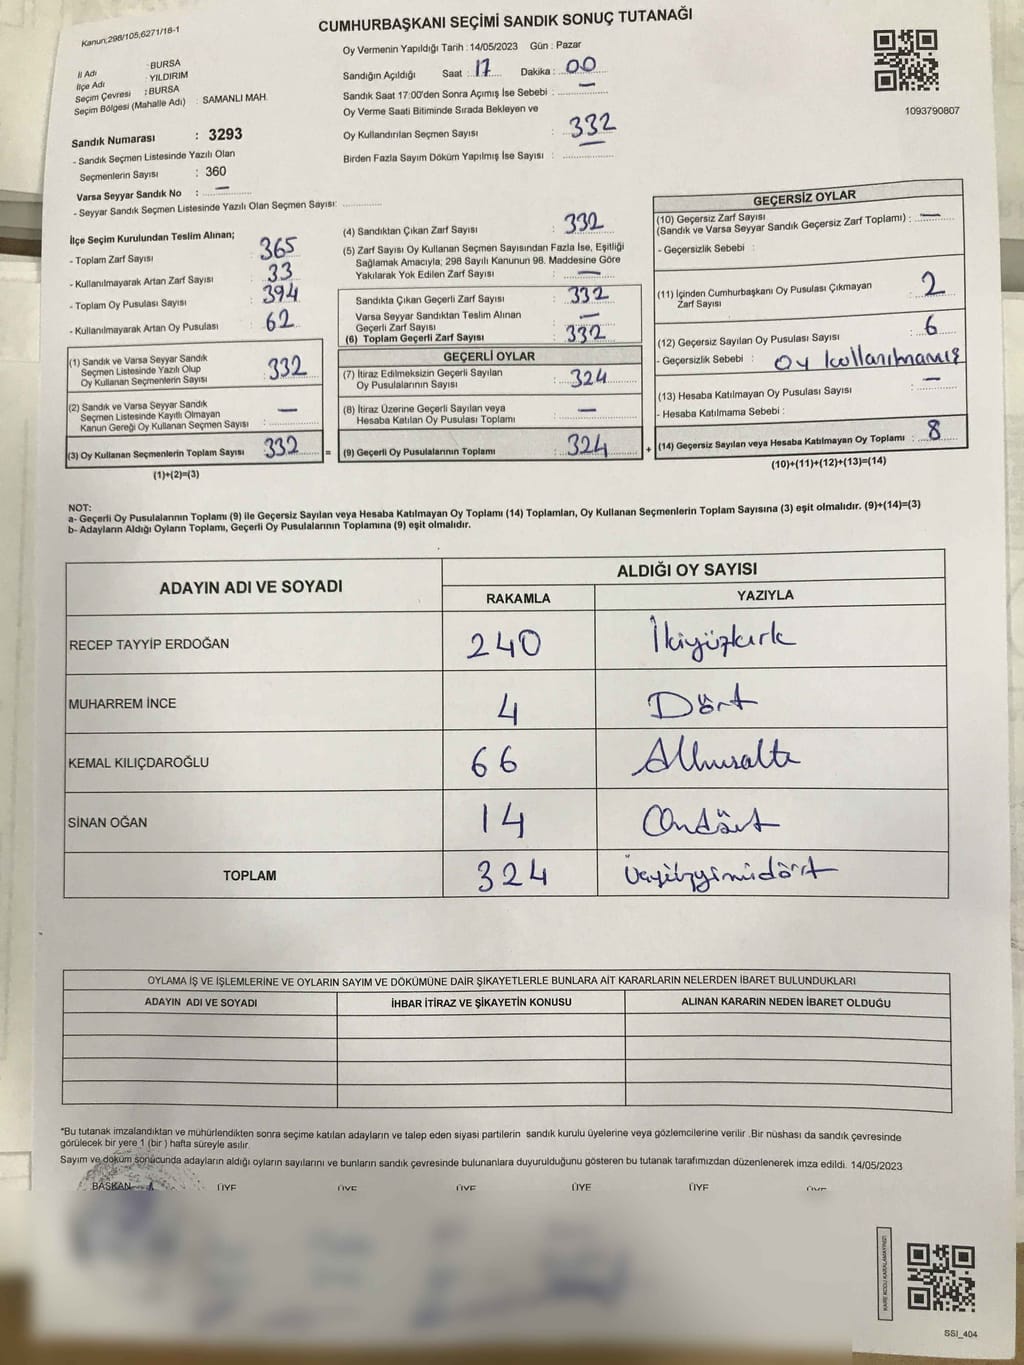 Kanun;298/105;6271/18-1
CUMHURBAŞKANI SEÇİMİ SANDIK SONUÇ TUTANAĞI
İl Adı : BURSA
İlçe Adı : YILDIRIM
Seçim Çevresi : BURSA
Seçim Bölgesi (Mahalle Adı) : SAMANLI MAH.
Sandık Numarası : 3293
- Sandık Seçmen Listesinde Yazılı Olan
Seçmenlerin Sayısı : 360
Varsa Seyyar Sandık No : —
- Seyyar Sandık Seçmen Listesinde Yazılı Olan Seçmen Sayısı:
Oy Vermenin Yapıldığı Tarih : 14/05/2023 Gün : Pazar
Sandığın Açıldığı Saat : 17 Dakika : 00
Sandık Saat 17:00'den Sonra Açımış İse Sebebi : —
Oy Verme Saati Bitiminde Sırada Bekleyen ve
Oy Kullandırılan Seçmen Sayısı : 332
Birden Fazla Sayım Döküm Yapılmış İse Sayısı :
1093790807
İlçe Seçim Kurulundan Teslim Alınan;
- Toplam Zarf Sayısı : 365
- Kullanılmayarak Artan Zarf Sayısı : 33
- Toplam Oy Pusulası Sayısı : 394
- Kullanılmayarak Artan Oy Pusulası : 62
(1) Sandık ve Varsa Seyyar Sandık
Seçmen Listesinde Yazılı Olup
Oy Kullanan Seçmenlerin Sayısı : 332
(2) Sandık ve Varsa Seyyar Sandık
Seçmen Listesinde Kayıtlı Olmayan
Kanun Gereği Oy Kullanan Seçmen Sayısı : —
(3) Oy Kullanan Seçmenlerin Toplam Sayısı 332 =
(1)+(2)=(3)
(4) Sandıktan Çıkan Zarf Sayısı : 332
(5) Zarf Sayısı Oy Kullanan Seçmen Sayısından Fazla İse, Eşitliği
Sağlamak Amacıyla; 298 Sayılı Kanunun 98. Maddesine Göre
Yakılarak Yok Edilen Zarf Sayısı : —
Sandıkta Çıkan Geçerli Zarf Sayısı : 332
Varsa Seyyar Sandıktan Teslim Alınan
Geçerli Zarf Sayısı : —
(6) Toplam Geçerli Zarf Sayısı : 332
GEÇERLİ OYLAR
(7) İtiraz Edilmeksizin Geçerli Sayılan
Oy Pusulalarının Sayısı : 324
(8) İtiraz Üzerine Geçerli Sayılan veya
Hesaba Katılan Oy Pusulası Toplamı : —
(9) Geçerli Oy Pusulalarının Toplamı : 324 +
GEÇERSİZ OYLAR
(10) Geçersiz Zarf Sayısı
(Sandık ve Varsa Seyyar Sandık Geçersiz Zarf Toplamı) : —
- Geçersizlik Sebebi :
(11) İçinden Cumhurbaşkanı Oy Pusulası Çıkmayan
Zarf Sayısı : 2
(12) Geçersiz Sayılan Oy Pusulası Sayısı : 6
- Geçersizlik Sebebi : Oy kullanılmamış
(13) Hesaba Katılmayan Oy Pusulası Sayısı : —
- Hesaba Katılmama Sebebi :
(14) Geçersiz Sayılan veya Hesaba Katılmayan Oy Toplamı : 8
(10)+(11)+(12)+(13)=(14)
NOT:
a- Geçerli Oy Pusulalarının Toplamı (9) ile Geçersiz Sayılan veya Hesaba Katılmayan Oy Toplamı (14) Toplamları, Oy Kullanan Seçmenlerin Toplam Sayısına (3) eşit olmalıdır. (9)+(14)=(3)
b- Adayların Aldığı Oyların Toplamı, Geçerli Oy Pusulalarının Toplamına (9) eşit olmalıdır.
ADAYIN ADI VE SOYADI
ALDIĞI OY SAYISI
RAKAMLA YAZIYLA
RECEP TAYYİP ERDOĞAN 240 İkiyüzkırk
MUHARREM İNCE 4 Dört
KEMAL KILIÇDAROĞLU 66 Altmışaltı
SİNAN OĞAN 14 Ondört
TOPLAM 324 Üçyüzyirmidört
OYLAMA İŞ VE İŞLEMLERİNE VE OYLARIN SAYIM VE DÖKÜMÜNE DAİR ŞİKAYETLERLE BUNLARA AİT KARARLARIN NELERDEN İBARET BULUNDUKLARI
ADAYIN ADI VE SOYADI İHBAR İTİRAZ VE ŞİKAYETİN KONUSU ALINAN KARARIN NEDEN İBARET OLDUĞU
*Bu tutanak imzalandıktan ve mühürlendikten sonra seçime katılan adayların ve talep eden siyasi partilerin sandık kurulu üyelerine veya gözlemcilerine verilir .Bir nüshası da sandık çevresinde
görülecek bir yere 1 (bir ) hafta süreyle asılır.
Sayım ve döküm sonucunda adayların aldığı oyların sayılarını ve bunların sandık çevresinde bulunanlara duyurulduğunu gösteren bu tutanak tarafımızdan düzenlenerek imza edildi. 14/05/2023
BAŞKAN ÜYE ÜYE ÜYE ÜYE ÜYE ÜYE
KARE KODU KARALAMAYINIZ!
SSI_404